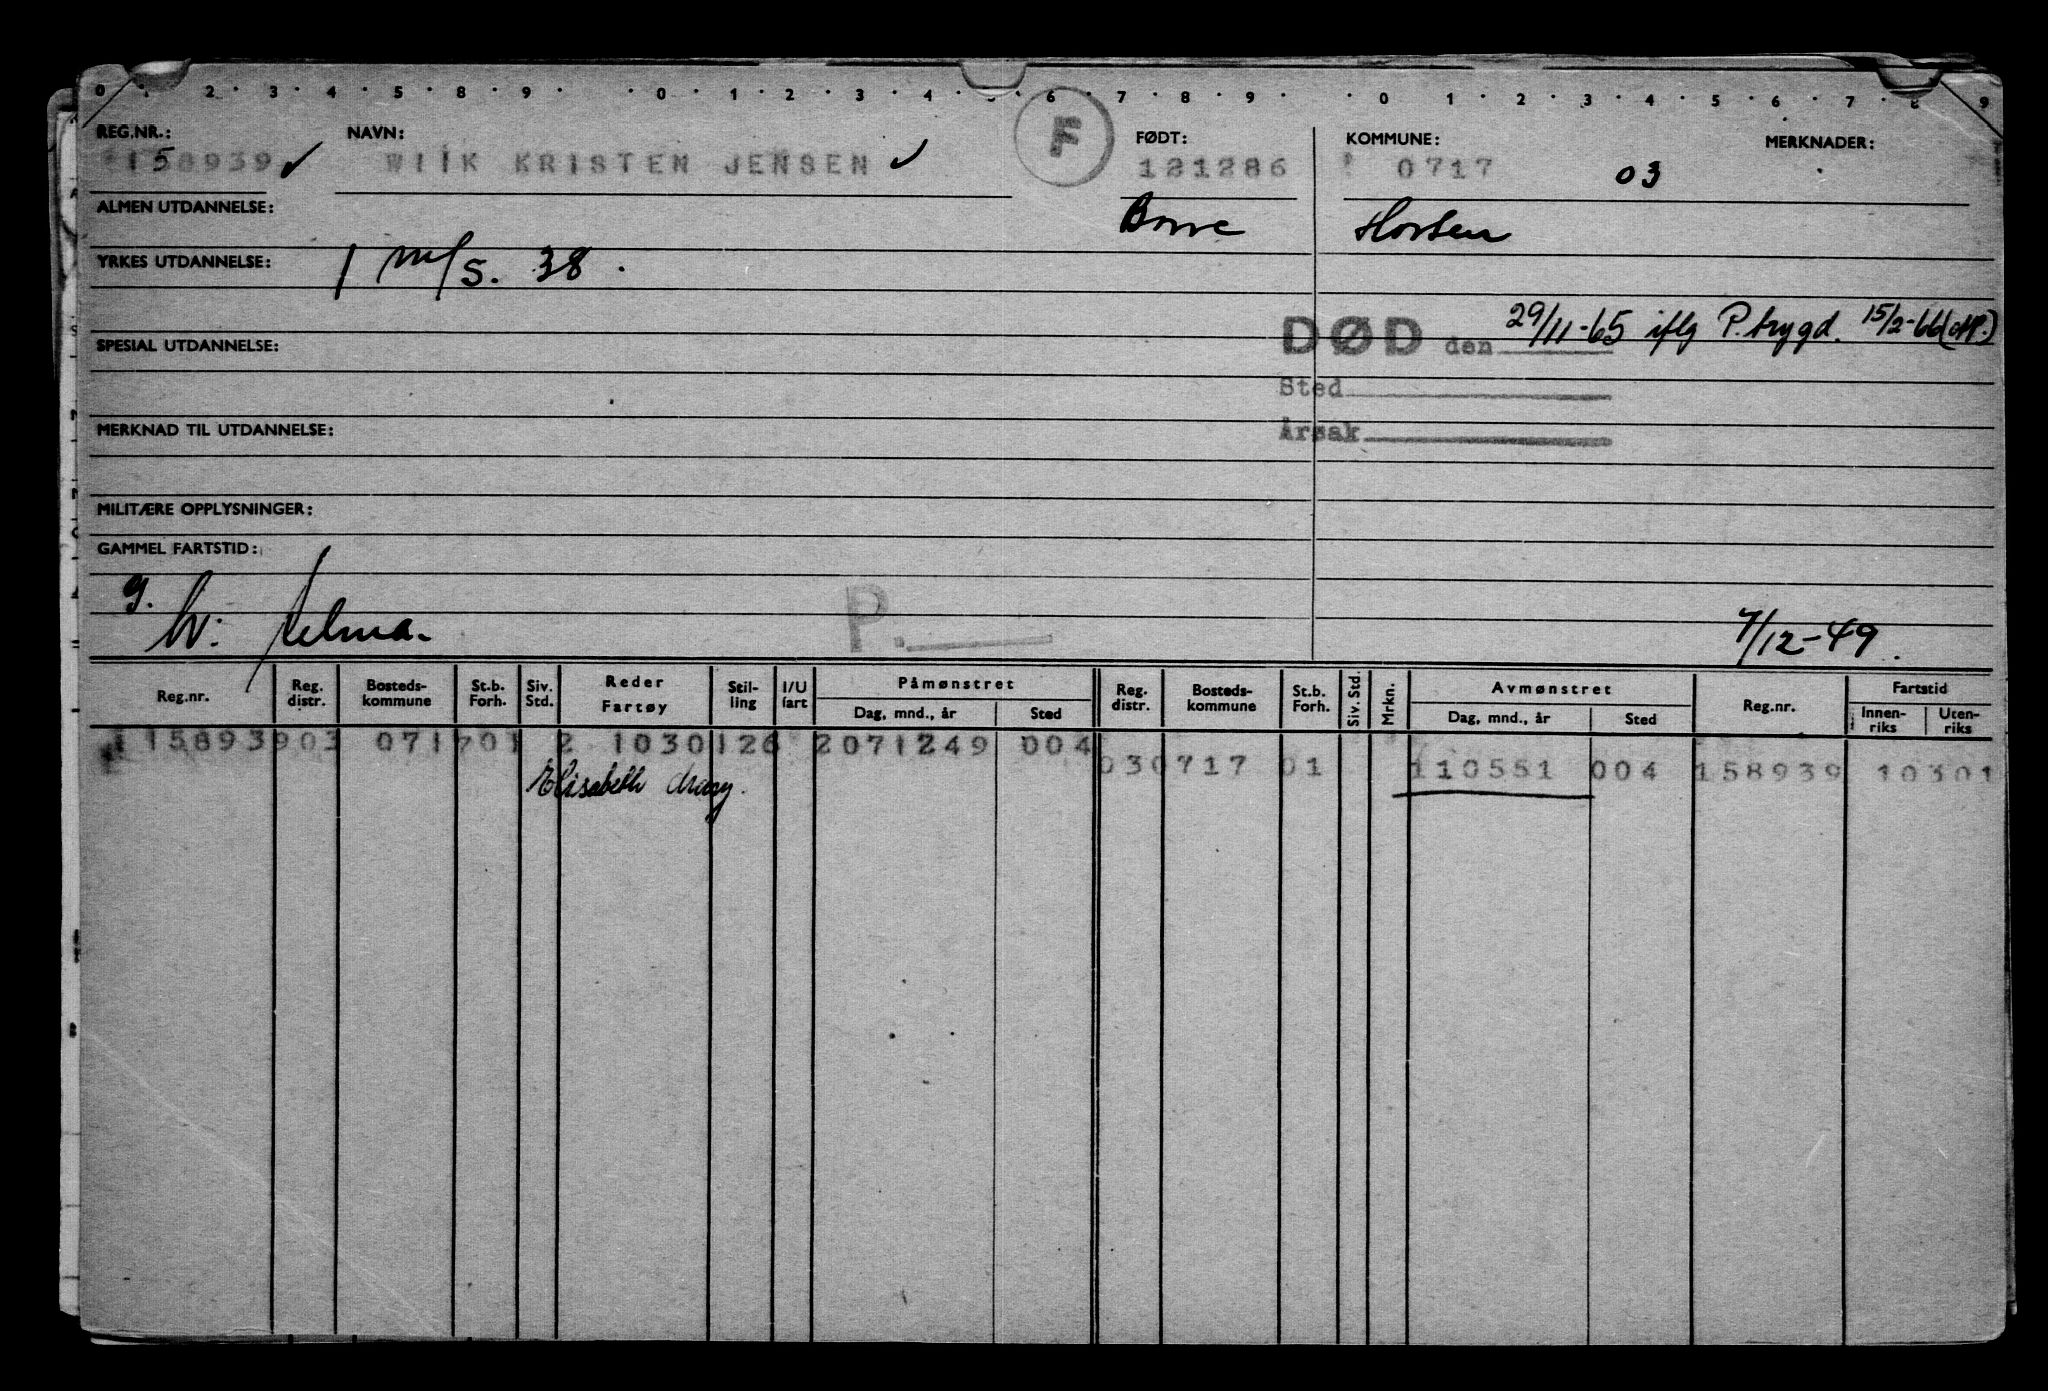 0 1 2 3 4 5 8 9 0 1 2 3 4 5 6 7 8 9 0 1 2 3 4 5 6 7 8 9
REG.NR.: NAVN: F FØDT: KOMMUNE: MERKNADER:
158939 ✓ WIIK KRISTEN JENSEN ✓ 121286 0717 03
ALMEN UTDANNELSE: Borre Horten
YRKES UTDANNELSE: 1 m/s. 38.
DØD den 29/11-65 iflg P.trygd. 15/2-66
SPESIAL UTDANNELSE:
Sted
MERKNAD TIL UTDANNELSE: Årsak
MILITÆRE OPPLYSNINGER:
GAMMEL FARTSTID:
g.
hv: Jelma. P. 7/12-49.
Reg.nr. Reg. distr. Bosteds- kommune St.b. Forh. Siv. Std. Reder Fartøy Stil- ling I/U fart Påmønstret Dag, mnd., år Sted Reg. distr. Bosteds- kommune St.b. Forh. Siv. Std. Mrkn. Avmønstret Dag, mnd., år Sted Reg.nr. Fartstid Innen- riks Uten- riks
115893903 071701 2 1030126 2071249 004
030717 01 110551 004 158939 10301
Elisabeth Mary.